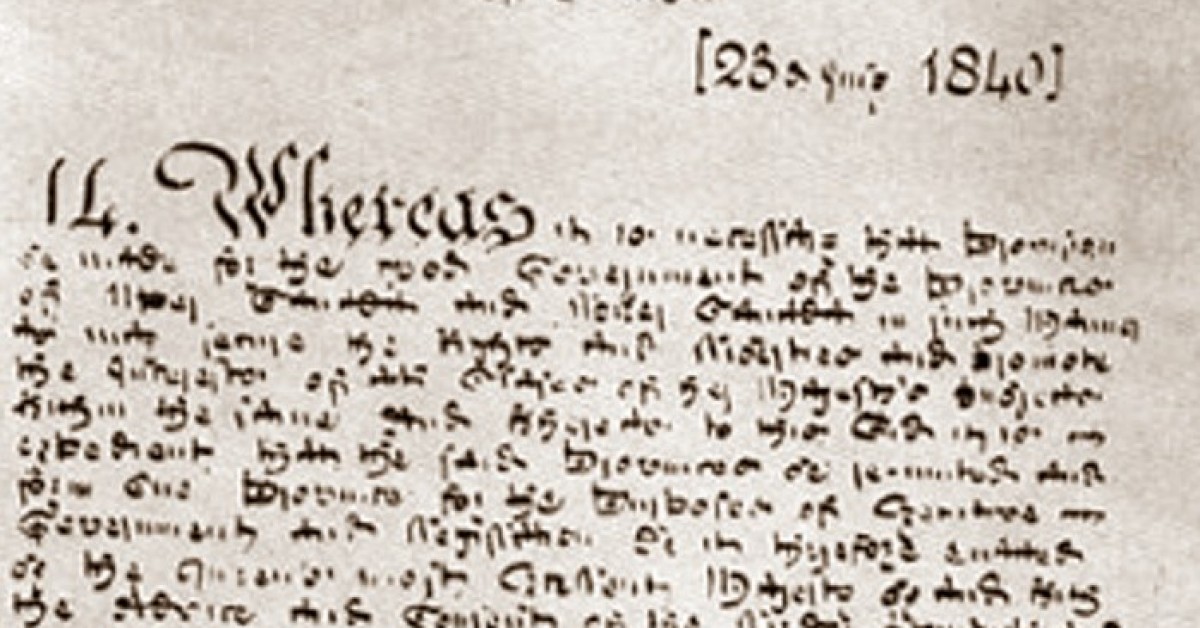 [23d July 1840]
14. Whereas it is necessary that Provision
be made for the good Government of the Provinces
of Upper Canada and Lower Canada in such Manner
as may secure the Rights and Liberties and promote
the Interests of all Classes of Her Majesty's Subjects
within the same And Whereas to this End it is
expedient that the said Provinces be reunited and
form One Province for the Purposes of Executive
Government and Legislation Be it therefore enacted
by the Queen's most Excellent Majesty by and with
the Advice and Consent of the